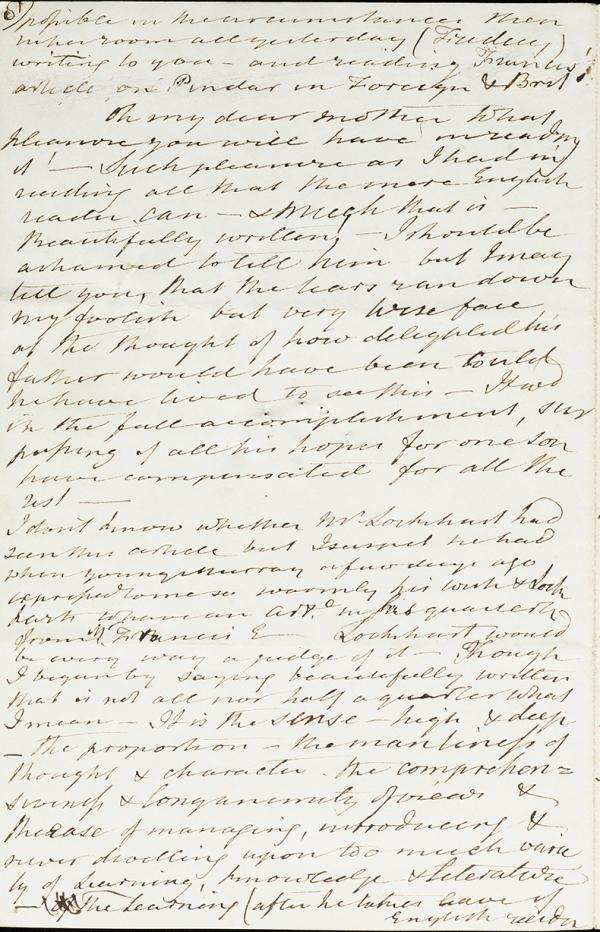 5) possible in the circumstances then
in her room all yesterday (Friday)
writing to you - and reading Francis'
article on Pindar in Foreign & Brit
Oh my dear mother what
pleasure you will have in reading
it! — Such pleasure as I had in
reading all that the mere English
reader can — & much that is —
Beautifully written — I should be
ashamed to tell him but I may
tell you, that the tears ran down
my foolish but very wise face
at the thought of how delighted his
father would have been could
he have lived to see this — It wd
in the full accomplishment, sur
passing of all his hopes for one son
have compensated for all the
rest —
I don't know whether Mr Lockhart had
seen this article but I suspect he had
when young Murray a few days ago
expressed to me so warmly his wish & Lock
harts to have an arte in his quarterly
from Mr Francis E — Lockhart would
be every way a judge of it — Though
I began by saying beautifully written
that is not all nor half a quarter what
I mean — It is the sense — high & deep
— the proportion — the manliness of
thought & character. the comprehen=
siveness & longanimity of views &
the ease of managing, introducing &
never dwelling upon too much varie
ty of Learning, knowledge & Literature
— The Learning (after he takes leave of
English reader